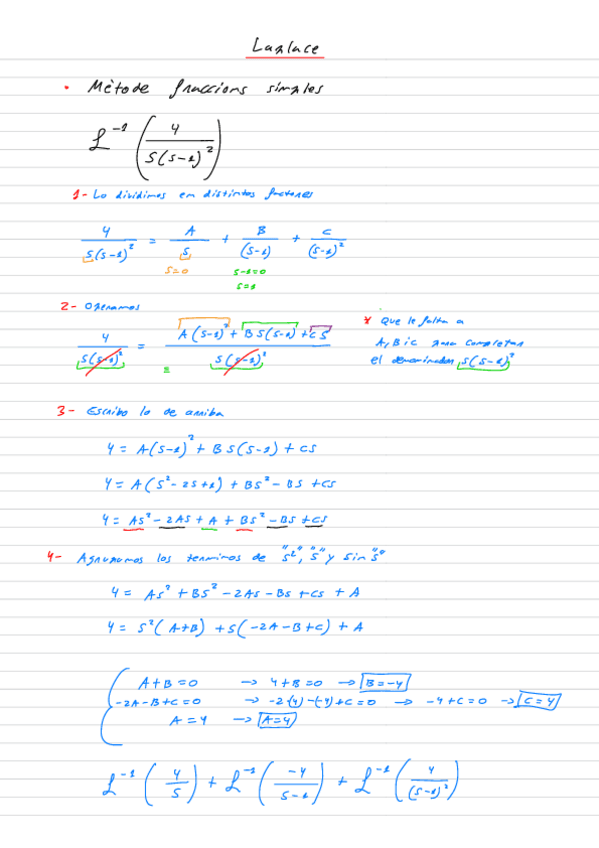 Laplace
• Mètode fraccions simples
ℒ⁻¹ ( 4 / S(S-1)² )
1- Lo dividimos em distintos factores
4 / S(S-1)² = A / S + B / (S-1) + C / (S-1)²
S=0 S-1=0
S=1
2- Operamos
4 / S(S-1)² = A(S-1)² + BS(S-1) + CS / S(S-1)²
=
* Que le falta a
A, B i C para completar
el denominador S(S-1)²
3- Escribo lo de arriba
4 = A(S-1)² + BS(S-1) + CS
4 = A(S² - 2S + 1) + BS² - BS + CS
4 = AS² - 2AS + A + BS² - BS + CS
4- Agrupamos los terminos de "S²", "S" y sin "S"
4 = AS² + BS² - 2AS - BS + CS + A
4 = S²(A+B) + S(-2A - B + C) + A
A + B = 0 → 4 + B = 0 → B = -4
-2A - B + C = 0 → -2(4) - (-4) + C = 0 → -4 + C = 0 → C = 4
A = 4 → A = 4
ℒ⁻¹ ( 4 / S ) + ℒ⁻¹ ( -4 / S-1 ) + ℒ⁻¹ ( 4 / (S-1)² )